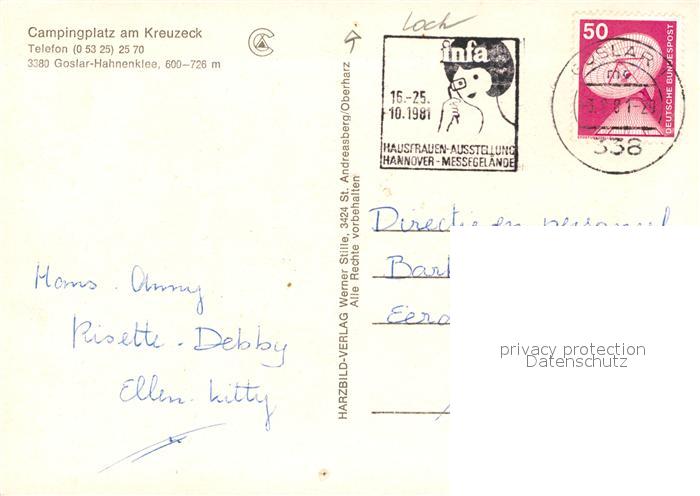 Campingplatz am Kreuzeck
Telefon (0 53 25) 25 70
3380 Goslar-Hahnenklee, 600–726 m
Loch
infa
16.-25.
10.1981
HAUSFRAUEN-AUSSTELLUNG
HANNOVER-MESSEGELÄNDE
50
DEUTSCHE BUNDESPOST
GOSLAR 1
mg
338
HARZBILD-VERLAG Werner Stille, 3424 St. Andreasberg/Oberharz
Alle Rechte vorbehalten
Directie en personeel
Bar
Eer
Hans. Anny
Risette - Debby
Ellen. Kitty
privacy protection
Datenschutz